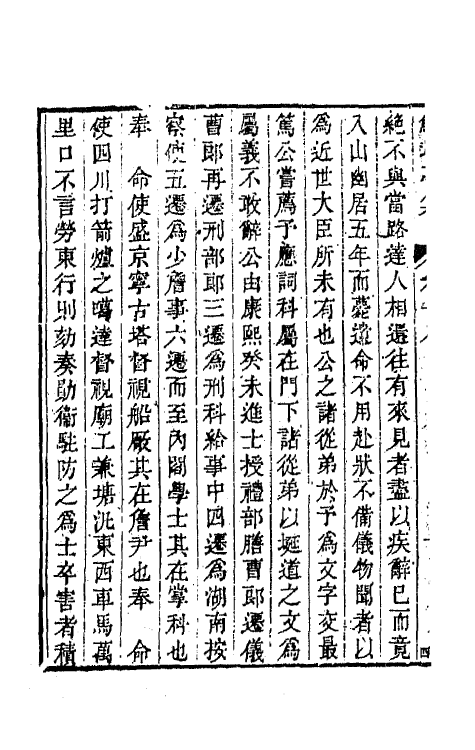 絶不與當路達人相還往有來見者盡以疾辭已而竟
入山幽居五年而薨遺命不用赴狀不備儀物聞者以
為近世大臣所未有也公之諸從弟於予為文字交最
篤公嘗薦予應詞科屬在門下諸從弟以埏道之文為
屬義不敢辭公由康熙癸未進士授禮部膳曹郎遷儀
曹郎再遷刑部郎三遷為刑科給事中四遷為湖南按
察使五遷為少詹事六遷而至內閣學士其在掌科也
奉　命使盛京寧古塔督視船厰其在詹尹也奉　命
使四川打箭爐之噶達督視廟工兼塘汛東西車馬萬
里口不言勞東行則劾奏勛衛駐防之為士卒害者積